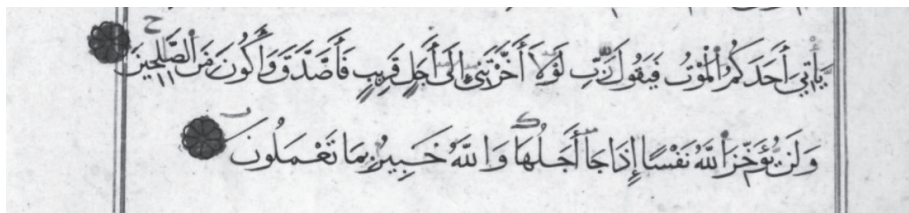 يَأْتِيَ أَحَدَكُمُ ٱلْمَوْتُ فَيَقُولَ رَبِّ لَوْلَا أَخَّرْتَنِي إِلَىٰ أَجَلٍ قَرِيبٍ فَأَصَّدَّقَ وَأَكُونَ مِنَ ٱلصَّٰلِحِينَ
وَلَن يُؤَخِّرَ ٱللَّهُ نَفْسًا إِذَا جَا أَجَلُهَا وَٱللَّهُ خَبِيرٌ بِمَا تَعْمَلُونَ